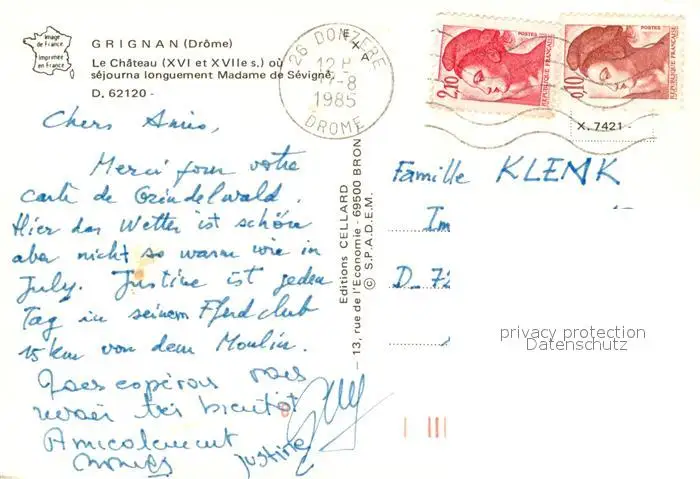 Image
de France
Imprimée
en France
GRIGNAN (Drôme)
Le Château (XVI et XVIIe s.) où
séjourna longuement Madame de Sévigné
D. 62120 -
26 DONZERE
12 H
-8
1985
DROME
2,10
REPUBLIQUE FRANÇAISE
0,10
REPUBLIQUE FRANÇAISE
X. 7421
Chers Amis,
Merci pour votre
carte de Grindelwald.
Hier das Wetter ist schön
aber nicht so warm wie in
July. Justine ist jeden
Tag in seinem Pferdclub
15 km von dem Moulin.
Nous espérons vous
revoir très bientôt
Amicalement
Justine
Editions CELLARD
13, rue de l'Economie - 69500 BRON
© S.P.A.D.E.M.
Famille KLENK
Im
D_72
privacy protection
Datenschutz